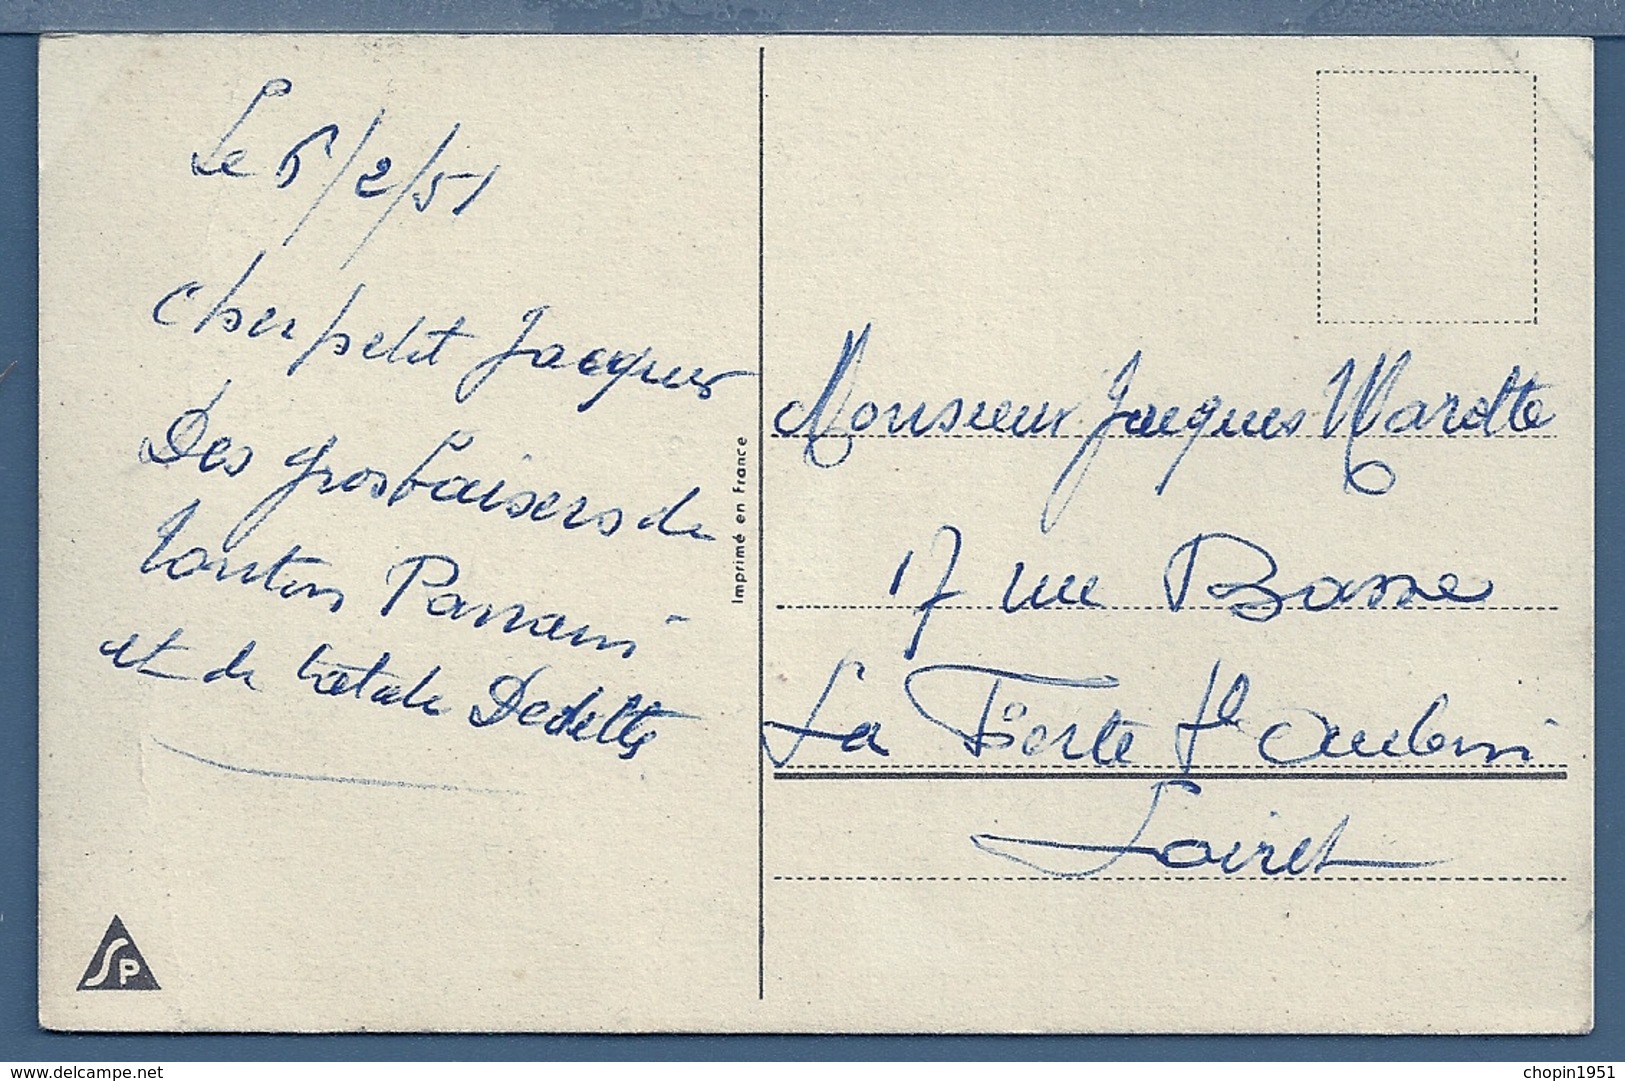 Le 6/2/51
Cher petit Jacques
Des gros baisers de
tonton Parrain
et de tatate Dedette
Imprimé en France
Monsieur Jacques Marotte
17 rue Basse
La Ferte St Aubin
Loiret
SP
chopin1951